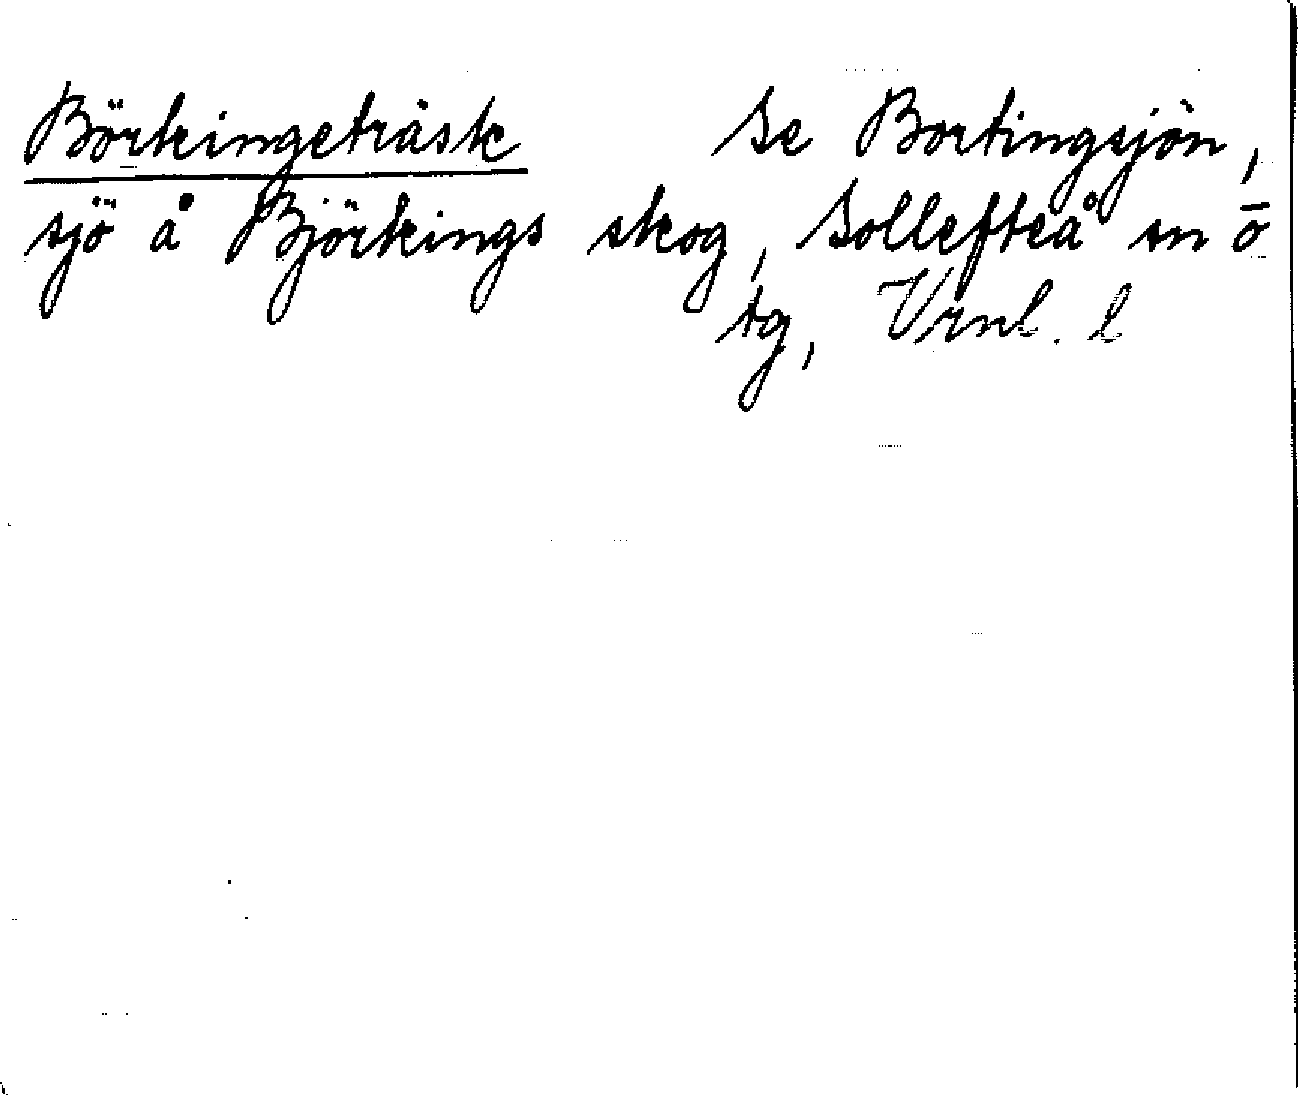 Börkingeträsk se Bortingsjön,
sjö å Björkings skog, Sollefteå sn o
tg, Vrnl. l